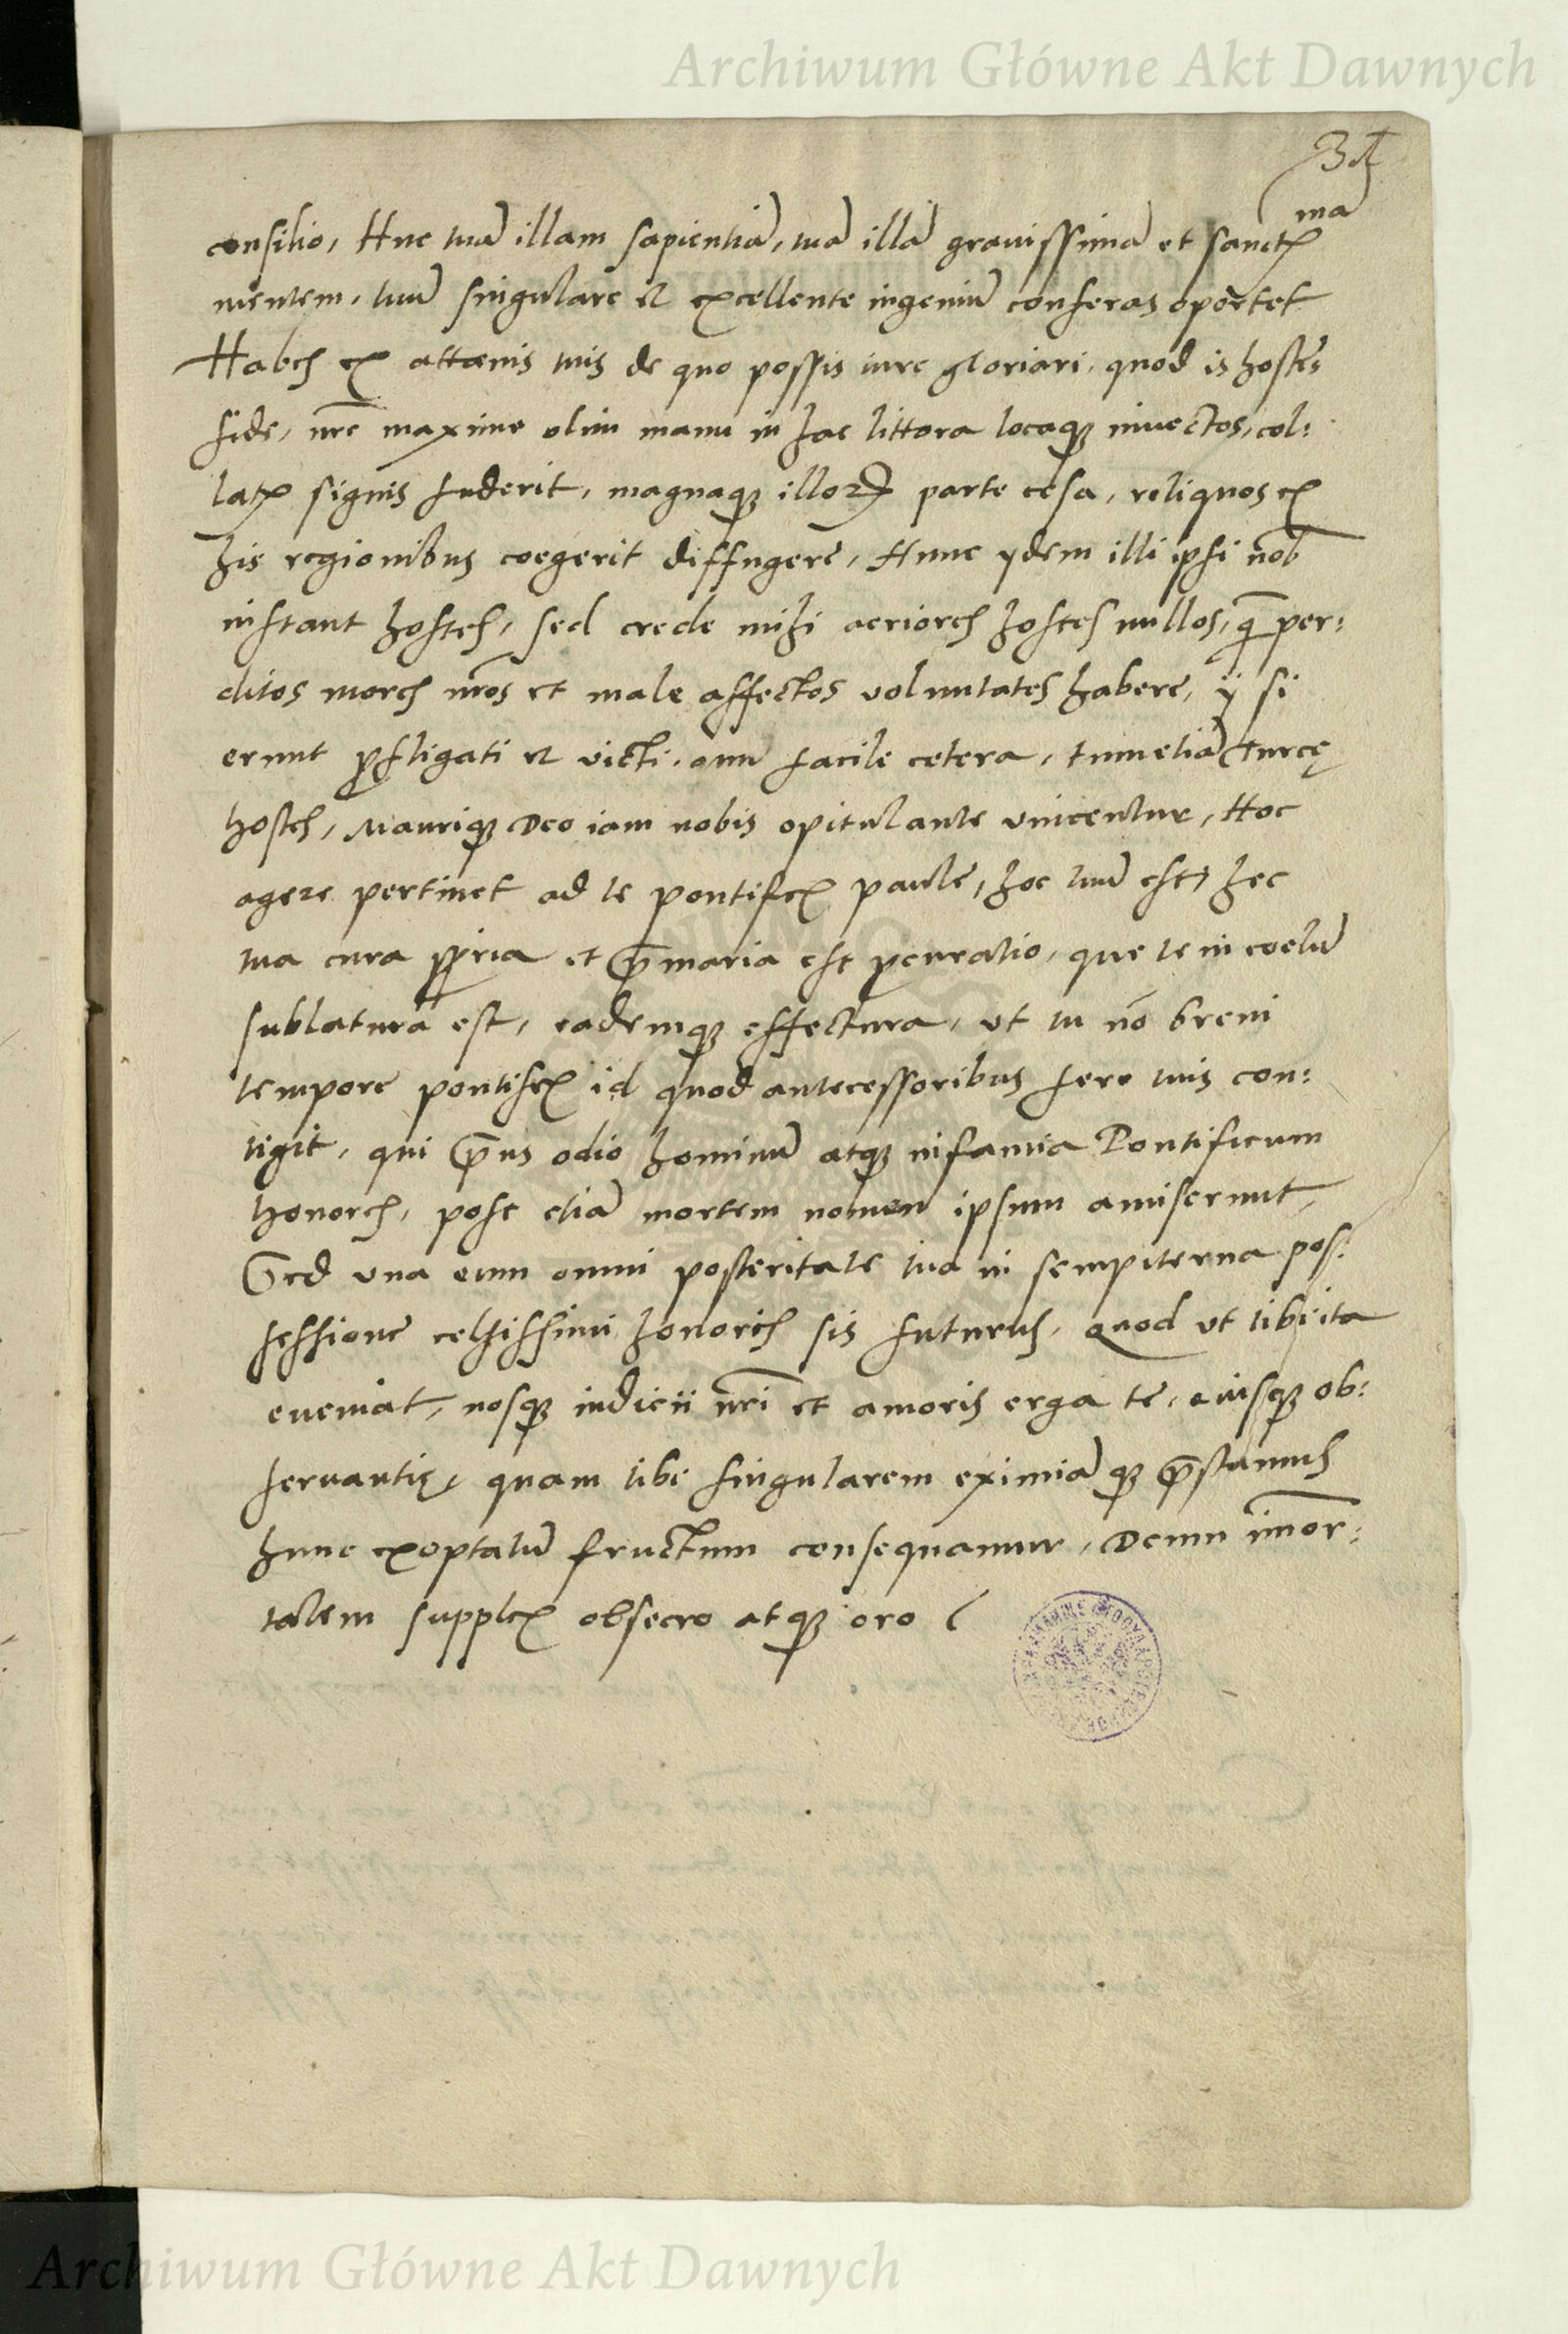 Archiwum Główne Akt Dawnych
31
consilio, Huc tuā illam sapientiā, tuā illā grauissimā et sanctiss^ma
mentem, tuū singulare et excellente ingeniū conferas oportet
Habes ex attauis tuis de quo possis iure gloriari, quod is hostes
fidei nrē maxime olim manu in hac littora locaq; inuectos, col:
latis signis fuderit, magnaq; illorꝫ parte cesa, reliquos ex
his regionibus coegerit diffugere, Hunc ydem illi ipsi nob̄
instant hostes, sed crede mihi acriores hostes nullos, q̄ per:
ditos mores nr̄os et male affectos voluntates habere, ij si
erunt ꝓfligati et victi, cum facile cetera, tum etiā turcę
hostes, Maurique Deo iam nobis opitulante vincentur, Hoc
agere pertinet ad te pontifex paule, hoc tuū est, hec
tua cura ꝓpria et p̄maria est ꝓcuratio, que te in coelū
sublatura est, eademq; effectura, ut tu nō breui
tempore pontifex id quod antecessoribus fere tuis con:
tigit, qui p̄us odio hominū atq; infamia Pontificum
honores, post etiā mortem nomen ipsum amiserunt,
Sed una cum omni posteritate tua in sempiterna pos:
sessione celsissimi honoris sis futurus. Quod ut tibi ita
eueniat, nosq; iudicii nrī et amoris erga te, eiusq; ob:
seruantię, quam tibi singularem eximiā q; p̄stamus
hunc exoptatū fructum consequamur, Deum im̄or:
talem supplex obsecro atq; oro
Archiwum Główne Akt Dawnych